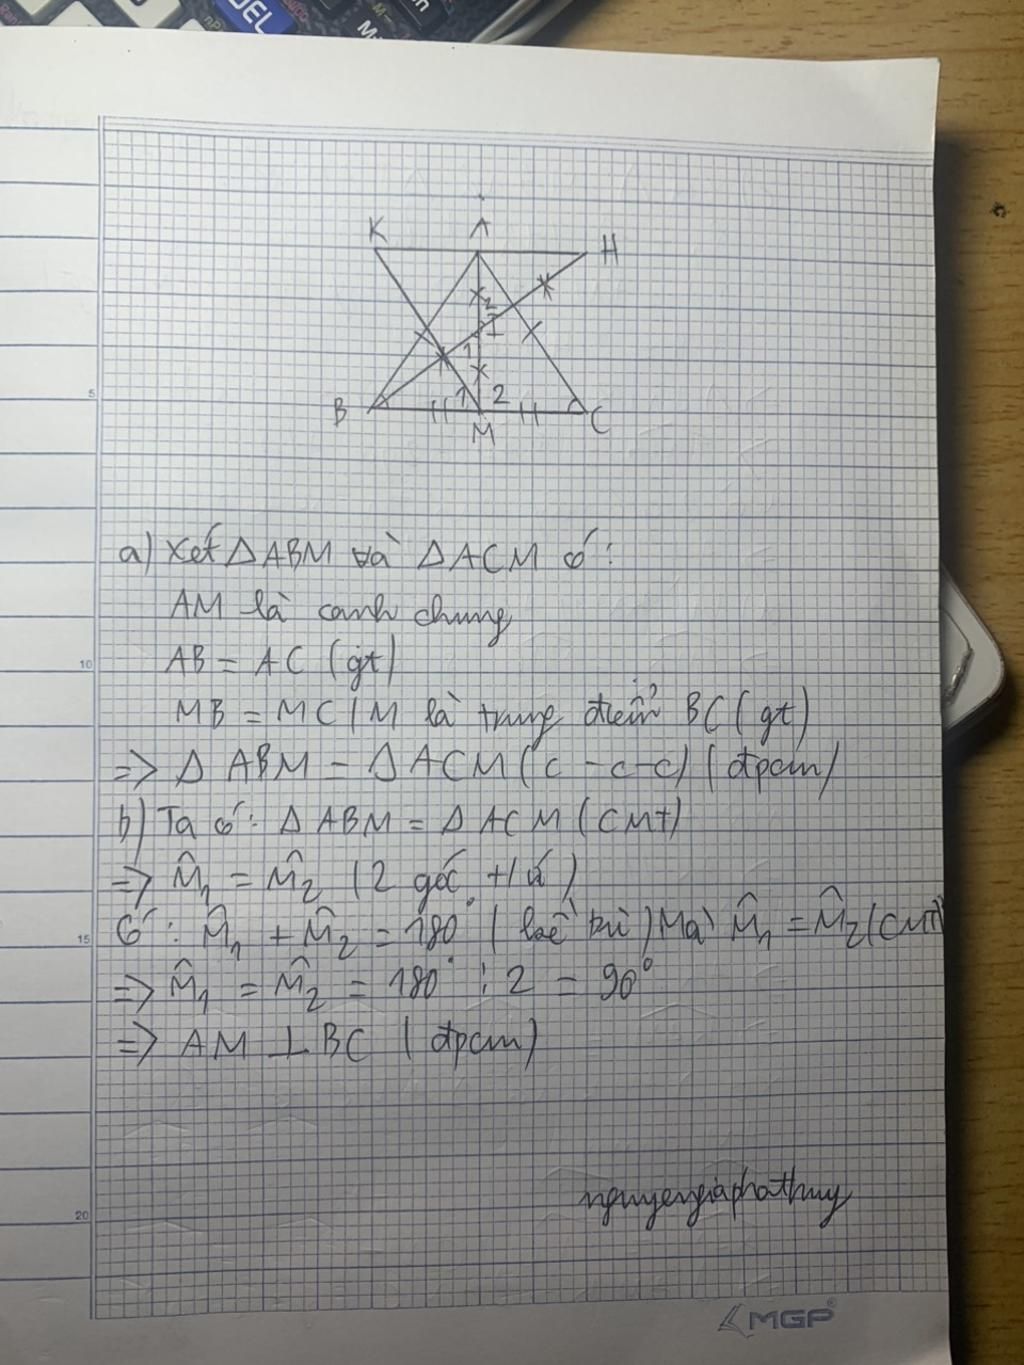 DEL
K A H
2
I
1
B 1 2 C
M
5
a) Xét ΔABM và ΔACM có:
AM là cạnh chung
10
AB = AC (gt)
MB = MC (M là trung điểm BC (gt)
=> Δ ABM = Δ ACM (c-c-c) (đpcm)
b) Ta có: Δ ABM = Δ ACM (CMT)
=> M̂₁ = M̂₂ (2 góc t/ứ)
15
Có: M̂₁ + M̂₂ = 180° (kề bù) Mà M̂₁ = M̂₂ (CMT)
=> M̂₁ = M̂₂ = 180° : 2 = 90°
=> AM ⊥ BC (đpcm)
nguyengiaphathuy
20
MGP